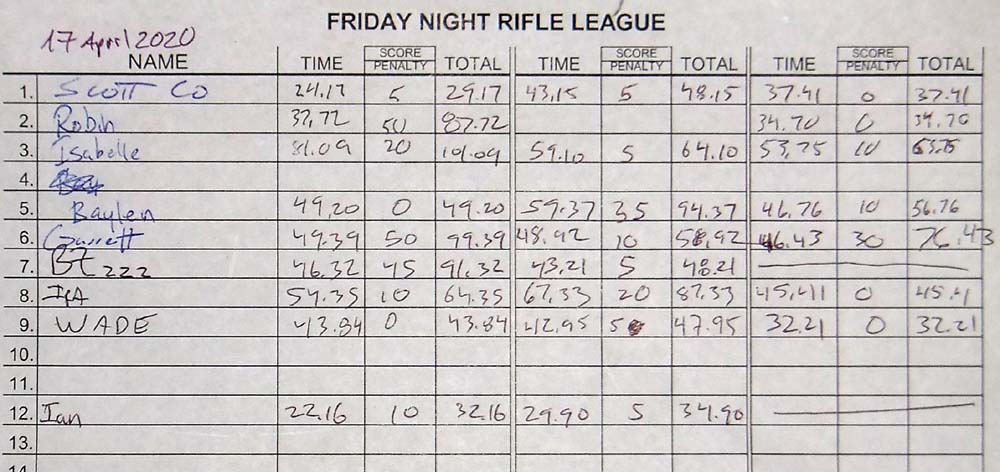 FRIDAY NIGHT RIFLE LEAGUE
17 April 2020
NAME TIME SCORE PENALTY TOTAL TIME SCORE PENALTY TOTAL TIME SCORE PENALTY TOTAL
1. SCOTT CO 24.17 5 29.17 43.15 5 48.15 37.41 0 37.41
2. Robin 37.72 50 87.72 34.70 0 34.70
3. Isabelle 81.09 20 101.09 59.10 5 64.10 53.75 10 63.75
4.
5. Baylen 49.20 0 49.20 59.37 35 94.37 46.76 10 56.76
6. Garrett 49.39 50 99.39 48.92 10 58.92 46.43 30 76.43
7. Btzzz 46.32 45 91.32 43.21 5 48.21
8. IRA 54.35 10 64.35 67.33 20 87.33 45.41 0 45.41
9. WADE 43.84 0 43.84 42.95 5 47.95 32.21 0 32.21
10.
11.
12. Ian 22.16 10 32.16 29.90 5 34.90
13.
14